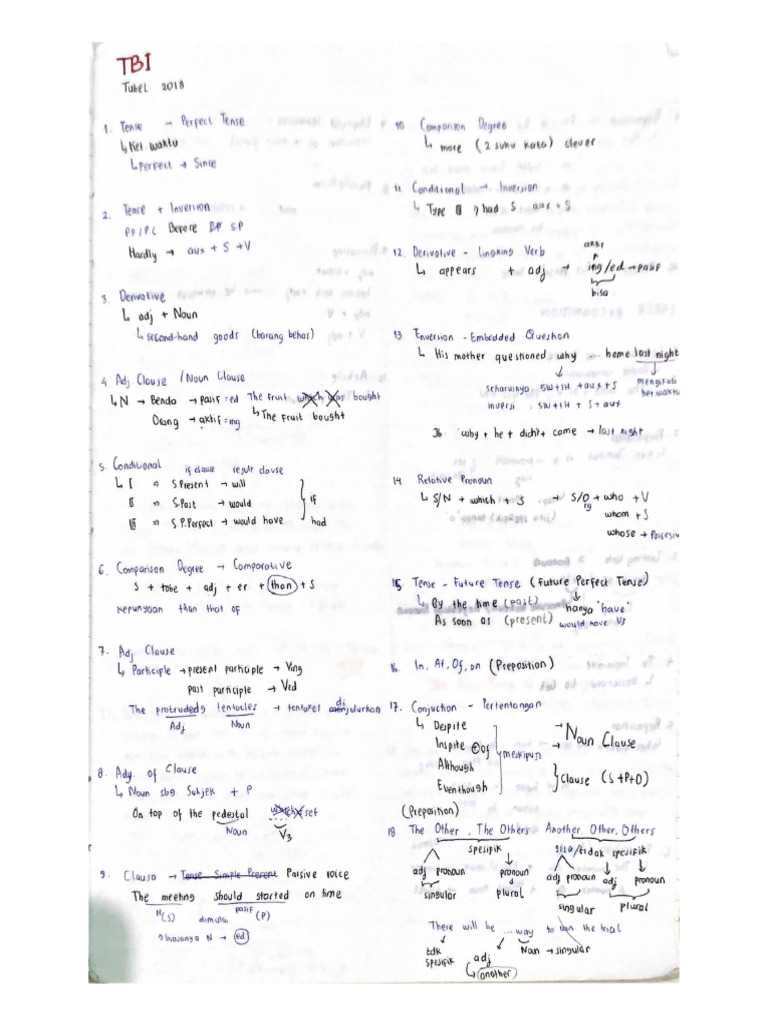 TBI
Tubel 2018
1. Tense → Perfect Tense
↳ Ket. waktu
↳ Perfect → Since
2. Tense + Inversion
PP/P.C Before S.P
Hardly → aux + S + V
3. Derivative
↳ adj + Noun
↳ second-hand goods (barang bekas)
4. Adj. Clause / Noun Clause
↳ N → Benda → pasif = ed The Fruit which was bought
Orang → aktif = ing ↳ The Fruit bought
5. Conditional if clause result clause
↳ I ⇒ S.Present → will
II ⇒ S.Past → would
III ⇒ S.P.Perfect → would have
if
had
6. Comparison Degree → Comparative
S + tobe + adj + er + than + S
kepunyaan than that of
7. Adj Clause
↳ Participle → present participle → Ving
past participle → Ved
The protruded tentacles → tentakel dijulurkan
Adj Noun
8. Adj. of Clause
↳ Noun sbg Subjek + P
On top of the pedestal which set
Noun V3
9. Clausa → Tense Simple Present Passive voice
The meeting should started on time
N(S) dimulai pasif (P)
biasanya N → ed
10. Comparison Degree
↳ more (2 suku kata) clever
11. Conditional → Inversion
↳ Type had S aux + S
12. Derivative - Lingking Verb
↳ appears + adj → ing/ed → pasif
aktif
bisa
13. Inversion - Embedded Question
↳ His mother questioned why ... home last night
seharusnya 5W+1H + aux + S
inversi 5W+1H + S + aux
ket waktu
Jb. why + he + didn't + come → last night
14. Relative Pronoun
↳ S/N + which + S → S/O + who + V
rg whom + S
whose + Possesive
15. Tense - Future Tense (Future Perfect Tense)
↳ By the time (past) hanya "have"
As soon as (present) would have V3
16. In, At, Of, on (Preposition)
17. Conjuction - Pertentangan
↳ Despite
Inspite + of
Although
Eventhough
meskipun
→ Noun Clause
Clause (S+P+O)
(Preposition)
18. The Other, The Others Another, Other, Others
spesifik sisa/tidak spesifik
adj pronoun pronoun adj pronoun adj pronoun
singular plural singular plural
There will be ... way to the trial
tdk spesifik adj Noun → singular
↳ another